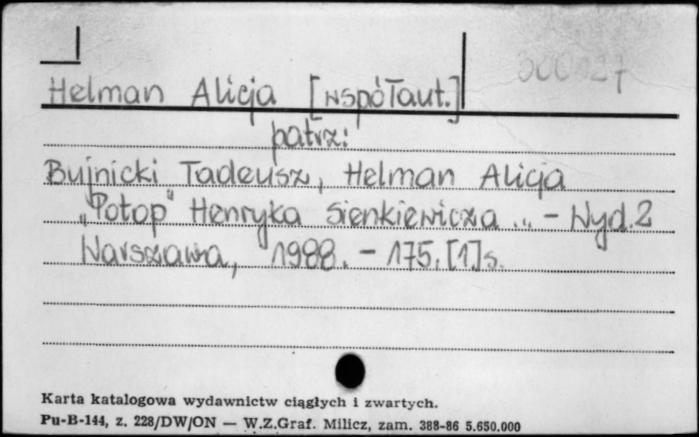 300027
Helman Alicja [współaut.]
patrz:
Bujnicki Tadeusz, Helman Alicja
„Potop" Henryka Sienkiewicza ... - Wyd.2
Warszawa, 1988. - 175,[1]s.
Karta katalogowa wydawnictw ciągłych i zwartych.
Pu-B-144, z. 228/DW/ON — W.Z.Graf. Milicz, zam. 388-86 5.650.000